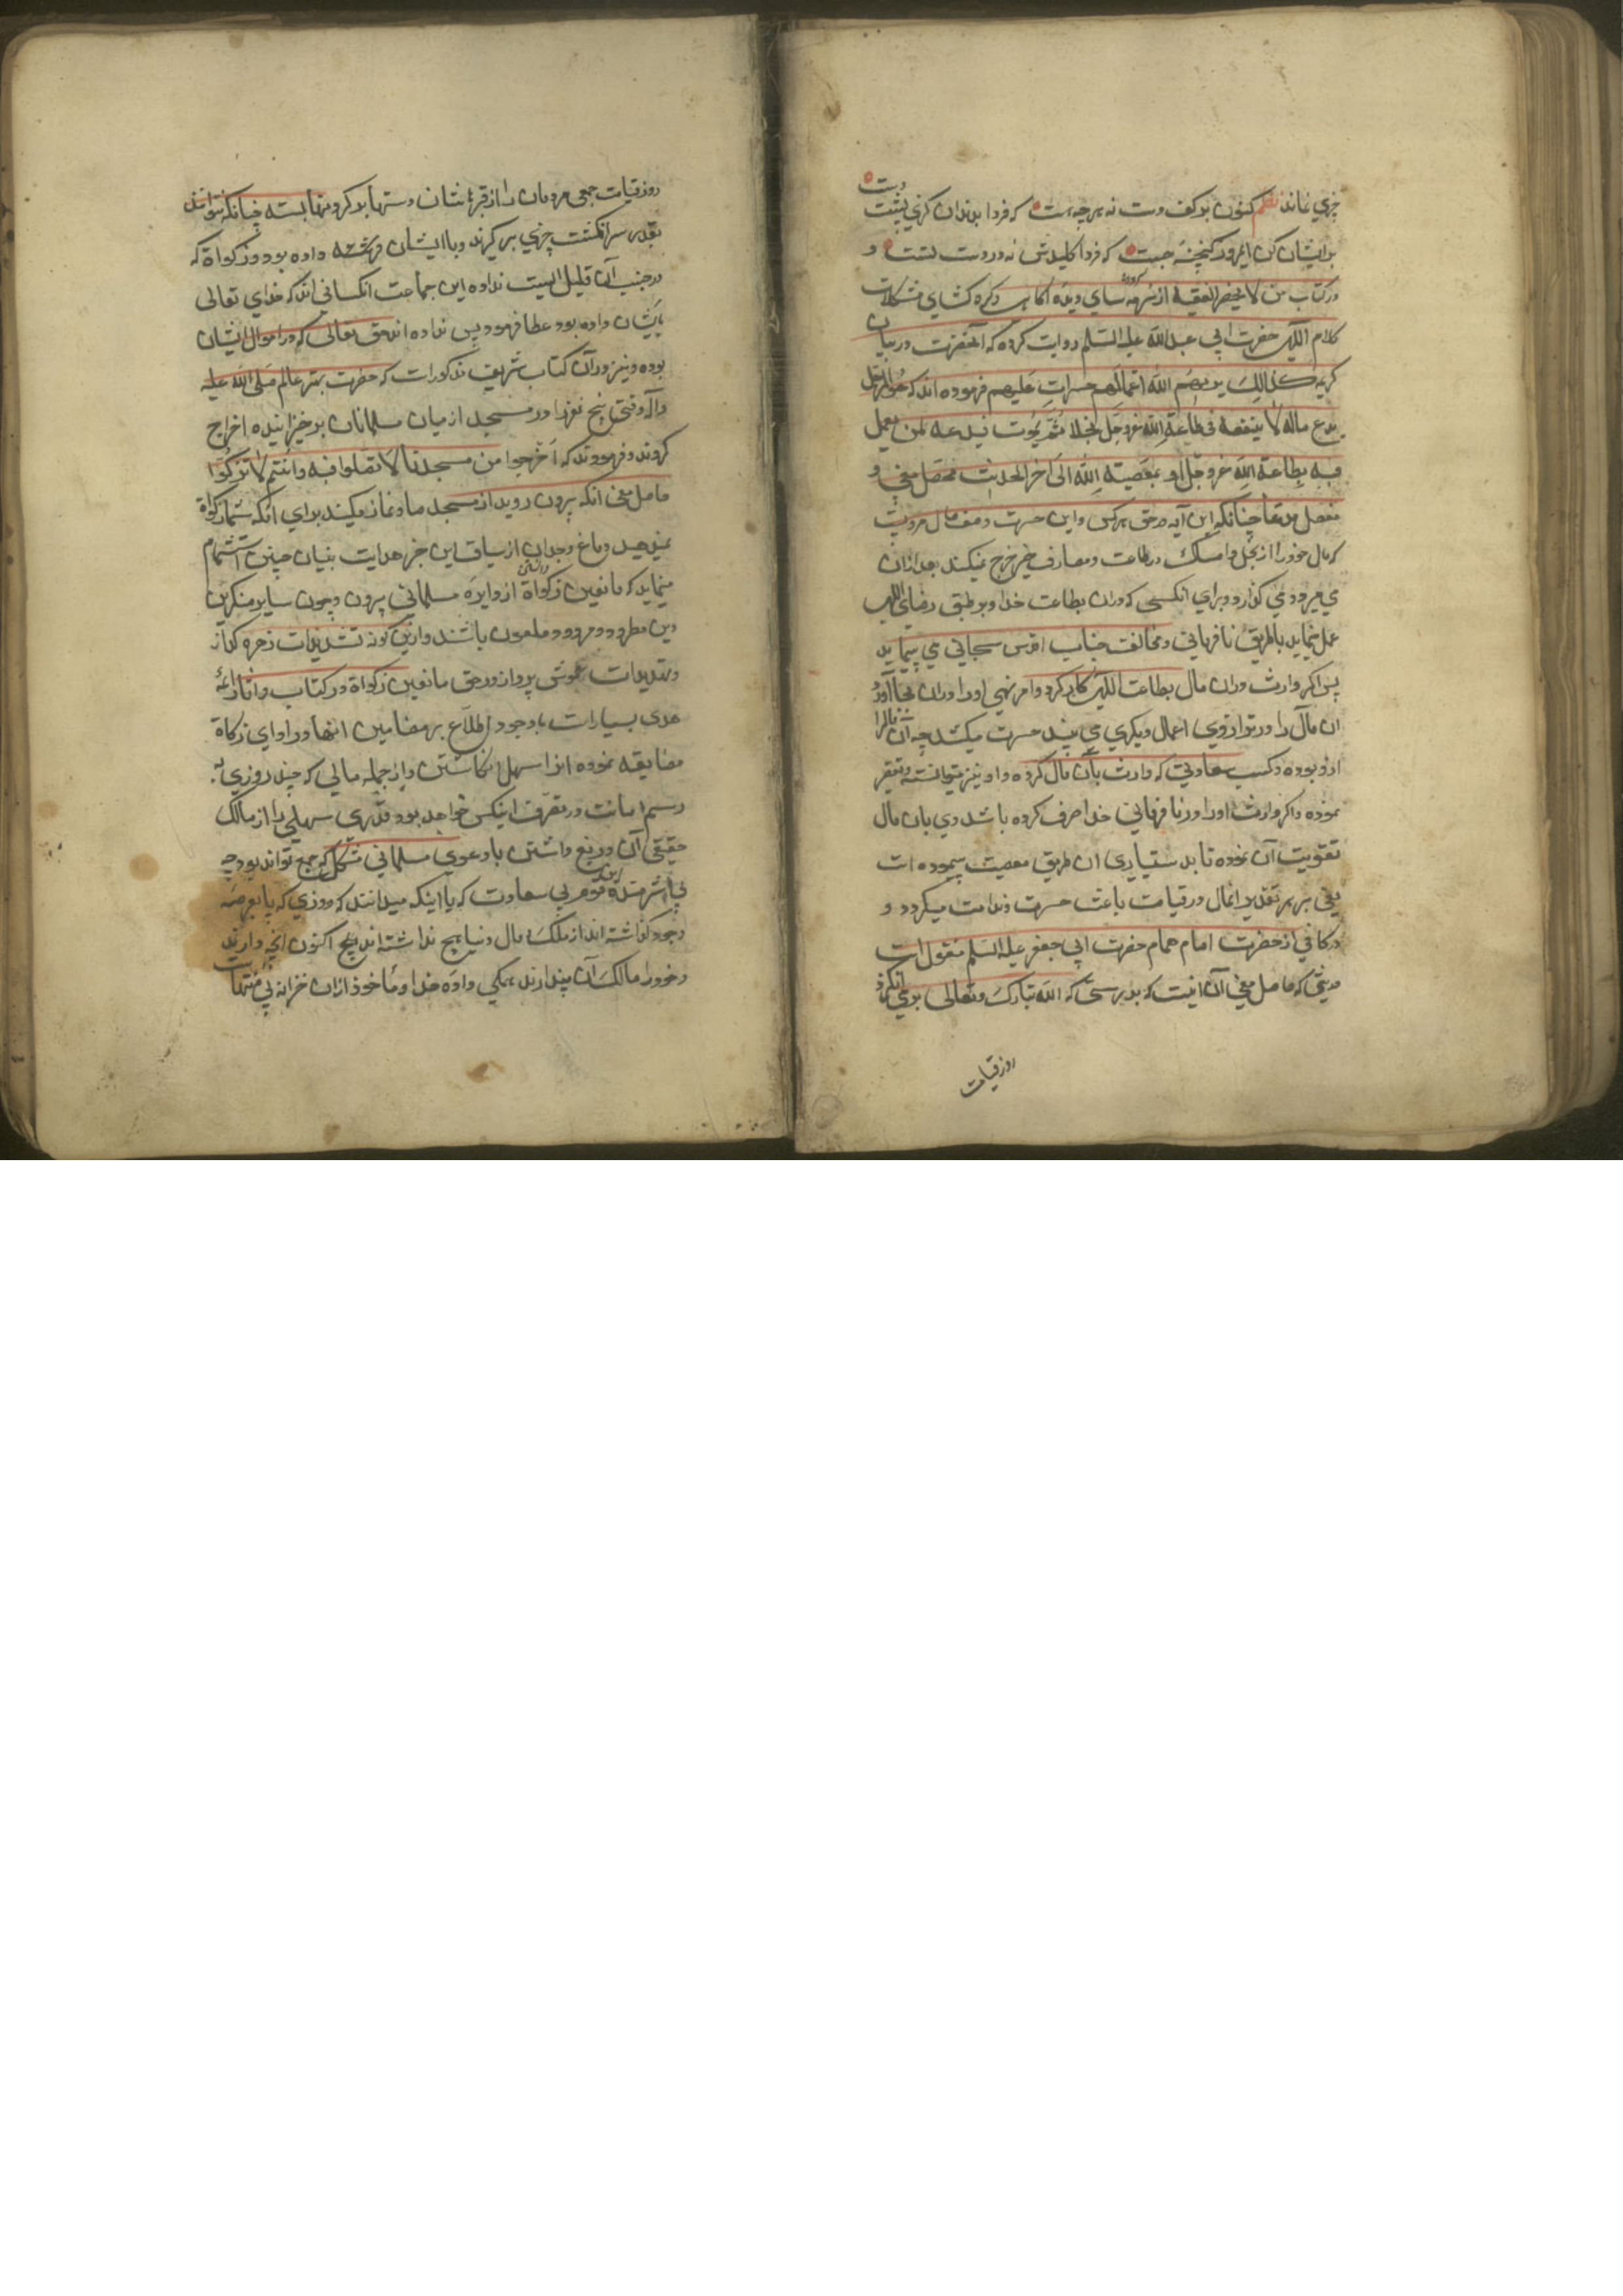 چیزی نماند نظم کنون بر کف دست نه هرچه هست که فردا بدندان گزی پشت دست
پریشان کن امروز گنجینه چست که فردا کلیدش نه در دست تست و
در کتاب من لا یحضره الفقیه از سرمه سای دیده اکابر و گره گشای مشکلات
کلام اللهی حضرت ابی عبدالله علیه السلام روایت کرده که آنحضرت در بیان
کریمه کذلک یریهم الله اعمالهم حسرات علیهم فرموده اند که هو الرجل
یدع ماله لا ینفقه فی طاعة الله عز و جل بخلا ثم یموت فیدعه لمن یعمل
فیه بطاعة الله عز و جل او بمعصیة الله الی اخر الحدیث محصل معنی و
مفصل مدعا چنانکه این آیه در حق هرکس و این حسرت وصف حال مردیست
که مال خود را از بخل و امساک در طاعت و مصارف خیر خرج نمیکند بعد ازان
می میرد و می گذارد برای انکسی که دران بطاعت خدا و بر طبق رضای الهی
عمل نماید یا طریق نافرمانی و مخالفت جناب اقدس سبحانی می پیماید
پس اگر وارث دران مال بطاعت الهی کار کرد و امر و نهی او را دران بجا آورد
آن مال را در ترازوی اعمال دیگری می بیند حسرت میکشد چه آن مال
ازو بوده و کسب سعادتی که وارث بآن مال کرده و او نیز میتوانسته و تقصیر
نموده و اگر وارث او را در نافرمانی خدا صرف کرده باشد وی بان مال
تقویت آن نموده تا بدستیاری آن طریق معصیت پیموده است
یعنی بر هر تقدیر آنمال در قیامت باعث حسرت و ندامت میگردد و
در کافی از حضرت امام همام حضرت ابی جعفر علیه السلم منقول است
حدیثی که حاصل معنی آن اینست که بدرستی که الله تبارک و تعالی برمی انگیزد
روز قیامت
روز قیامت جمعی مردمان را از قبرهاشان دستها بر گردنها بسته چنانکه نتوانند
بقدر سر انگشت چیزی برگیرند و با ایشان فرشته
در جنب آن قلیل است نداده این جماعت انکسانی اند که خدای تعالی
بایشان داده بود عطا فرمود پس نداده اند حق تعالی که در اموال ایشان
بوده و نیز در آن کتاب شریف مذکور است که حضرت بهتر عالم صلی الله علیه
و آله وقتی پنج نفر را در مسجد از میان مسلمانان برخیزانیده اخراج
کردند و فرمودند که اخرجوا من مسجدنا لا تصلوا فیه و انتم لا تزکوا
حاصل معنی انکه بیرون روید از مسجد ما و نماز مکنید برای انکه شما زکوة
نمیدهید دماغ وجدان از سیاق این خبر هدایت بنیان چنین استشمام
مینماید که مانعین زکواة از دایره مسلمانی بیرون و چون سایر منکرین
دین مطرود و مردود و ملعون باشند و ازین گونه تشدیدات زهره گداز
و تهدیدات هوش پرداز در حق مانعین زکواة در کتاب و اثار ائمه
هدی بسیار است با وجود اطلاع بر مضامین انها در ادای زکاة
مضایقه نموده انرا سهل انگاشتن و از جمله مالی که چند روزی به
رسم امانت در تصرف اینکس خواهد بود قدری سهلی را از مالک
حقیقی آن دریغ داشتن با دعوی مسلمانی مشکل که جمع تواند بود چه
بی شرمند این قوم بی سعادت که با اینکه میدانند که روزی که پا بعرصه
وجود گذاشته اند از ملک و مال دنیا هیچ نداشته اند هیچ اکنون انچه دارند
و خود را مالک آن پندارند همگی داده خدا و مأخوذ ازان خزانه بی منتهاست